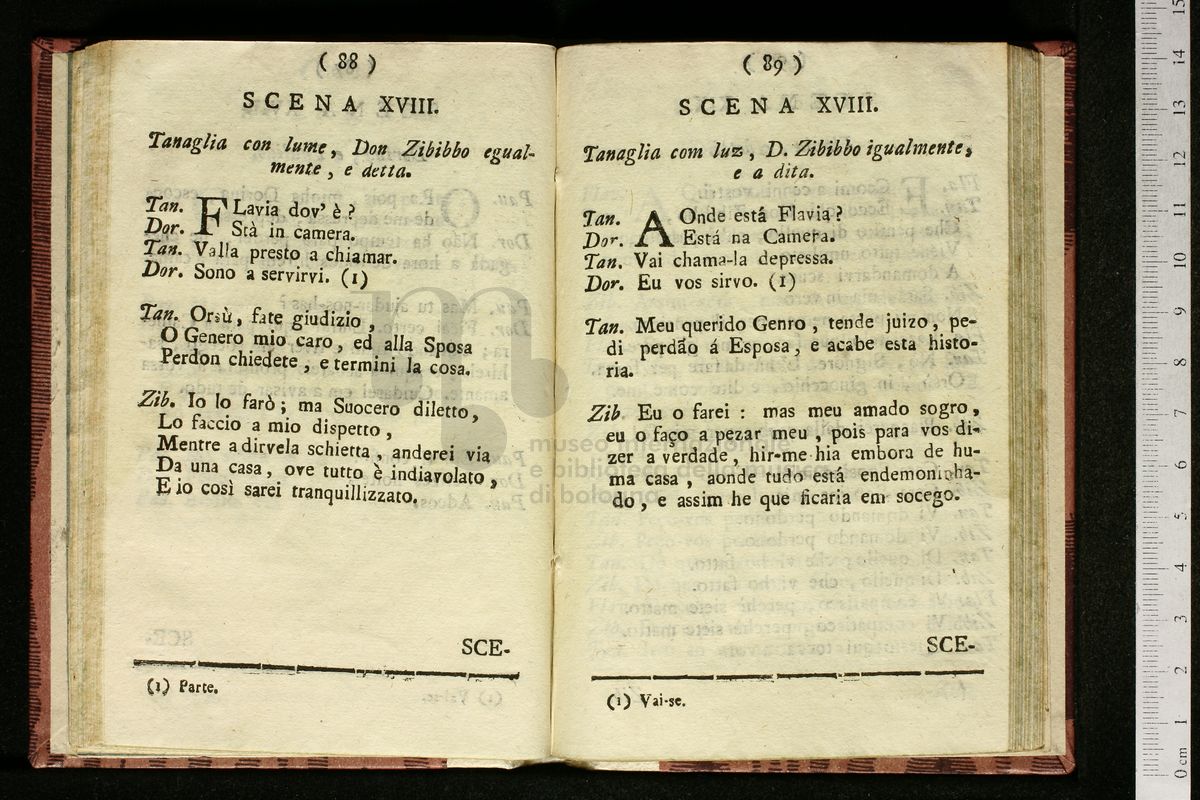 ( 88 )
SCENA XVIII.
Tanaglia con lume, Don Zibibbo egual-
mente, e detta.
Tan. FLavia dov' è?
Dor. Stà in camera.
Tan. Valla presto a chiamar.
Dor. Sono a servirvi. (1)
Tan. Orsù, fate giudizio,
O Genero mio caro, ed alla Sposa
Perdon chiedete, e termini la cosa.
Zib. Io lo farò; ma Suocero diletto,
Lo faccio a mio dispetto,
Mentre a dirvela schietta, anderei via
Da una casa, ove tutto è indiavolato,
E io così sarei tranquillizzato.
SCE-
(1) Parte.
( 89 )
SCENA XVIII.
Tanaglia com luz, D. Zibibbo igualmente,
e a dita.
Tan. AOnde está Flavia?
Dor. Está na Camera.
Tan. Vai chama-la depressa.
Dor. Eu vos sirvo. (1)
Tan. Meu querido Genro, tende juizo, pe-
di perdão á Esposa, e acabe esta histo-
ria.
Zib Eu o farei: mas meu amado sogro,
eu o faço a pezar meu, pois para vos di-
zer a verdade, hir-me-hia embora de hu-
ma casa, aonde tudo está endemoninha-
do, e assim he que ficaria em socego.
SCE-
(1) Vai-se.
museo internazionale
e biblioteca della musica
di bologna
0 cm 1 2 3 4 5 6 7 8 9 10 11 12 13 14 15